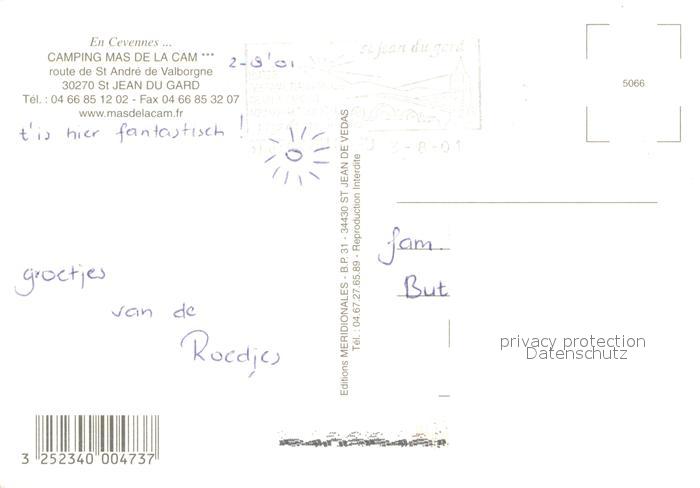 En Cevennes ...
CAMPING MAS DE LA CAM ***
route de St André de Valborgne
30270 St JEAN DU GARD
Tél. : 04 66 85 12 02 - Fax 04 66 85 32 07
www.masdelacam.fr
2-8'01
t'is hier fantastisch !
groetjes
van de
Roedjes
3 252340 004737
Editions MERIDIONALES - B.P. 31 - 34430 ST JEAN DE VEDAS
Tél. : 04.67.27.65.89 - Reproduction Interdite
st jean du gard
3-8-01
5066
fam.
But
privacy protection
Datenschutz